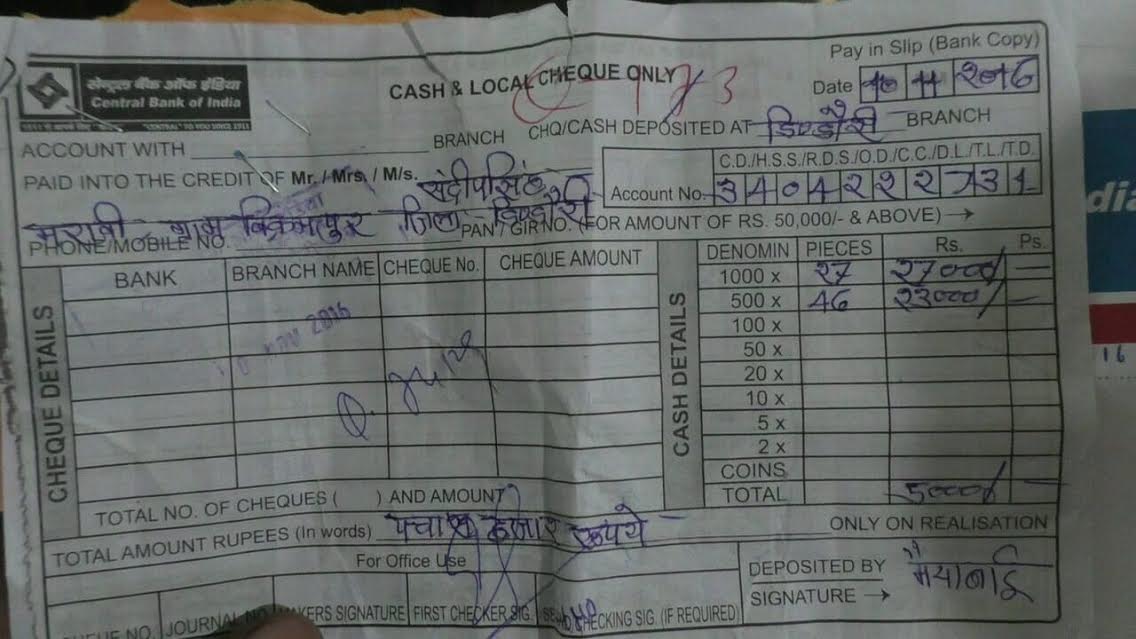 Pay in Slip (Bank Copy)
सेन्ट्रल बैंक ऑफ इंडिया
Central Bank of India
"CENTRAL" TO YOU SINCE 1911
CASH & LOCAL CHEQUE ONLY
Date 10 11 2016
ACCOUNT WITH BRANCH CHQ/CASH DEPOSITED AT डिण्डौरी BRANCH
C.D./H.S.S./R.D.S./O.D./C.C./D.L./T.L./T.D.
PAID INTO THE CREDIT OF Mr. / Mrs. / M/s. संदीपसिंह
Account No. 3404222731
मरावी ग्राम विक्रमपुर जिला - डिण्डौरी
PHONE/MOBILE NO. PAN / GIR NO. (FOR AMOUNT OF RS. 50,000/- & ABOVE) →
CHEQUE DETAILS
BANK BRANCH NAME CHEQUE No. CHEQUE AMOUNT
10 NOV 2016
CASH DETAILS
DENOMIN PIECES Rs. Ps.
1000 x 27 27000/ —
500 x 46 23000/ —
100 x
50 x
20 x
10 x
5 x
2 x
COINS
TOTAL 50000/ —
TOTAL NO. OF CHEQUES ( ) AND AMOUNT
TOTAL AMOUNT RUPEES (In words) पचास हजार रूपये
ONLY ON REALISATION
For Office Use
DEPOSITED BY
SIGNATURE →
मैयाबाई
QUEUE NO. JOURNAL NO. MAKERS SIGNATURE FIRST CHECKER SIG. CHECKING SIG. (IF REQUIRED)